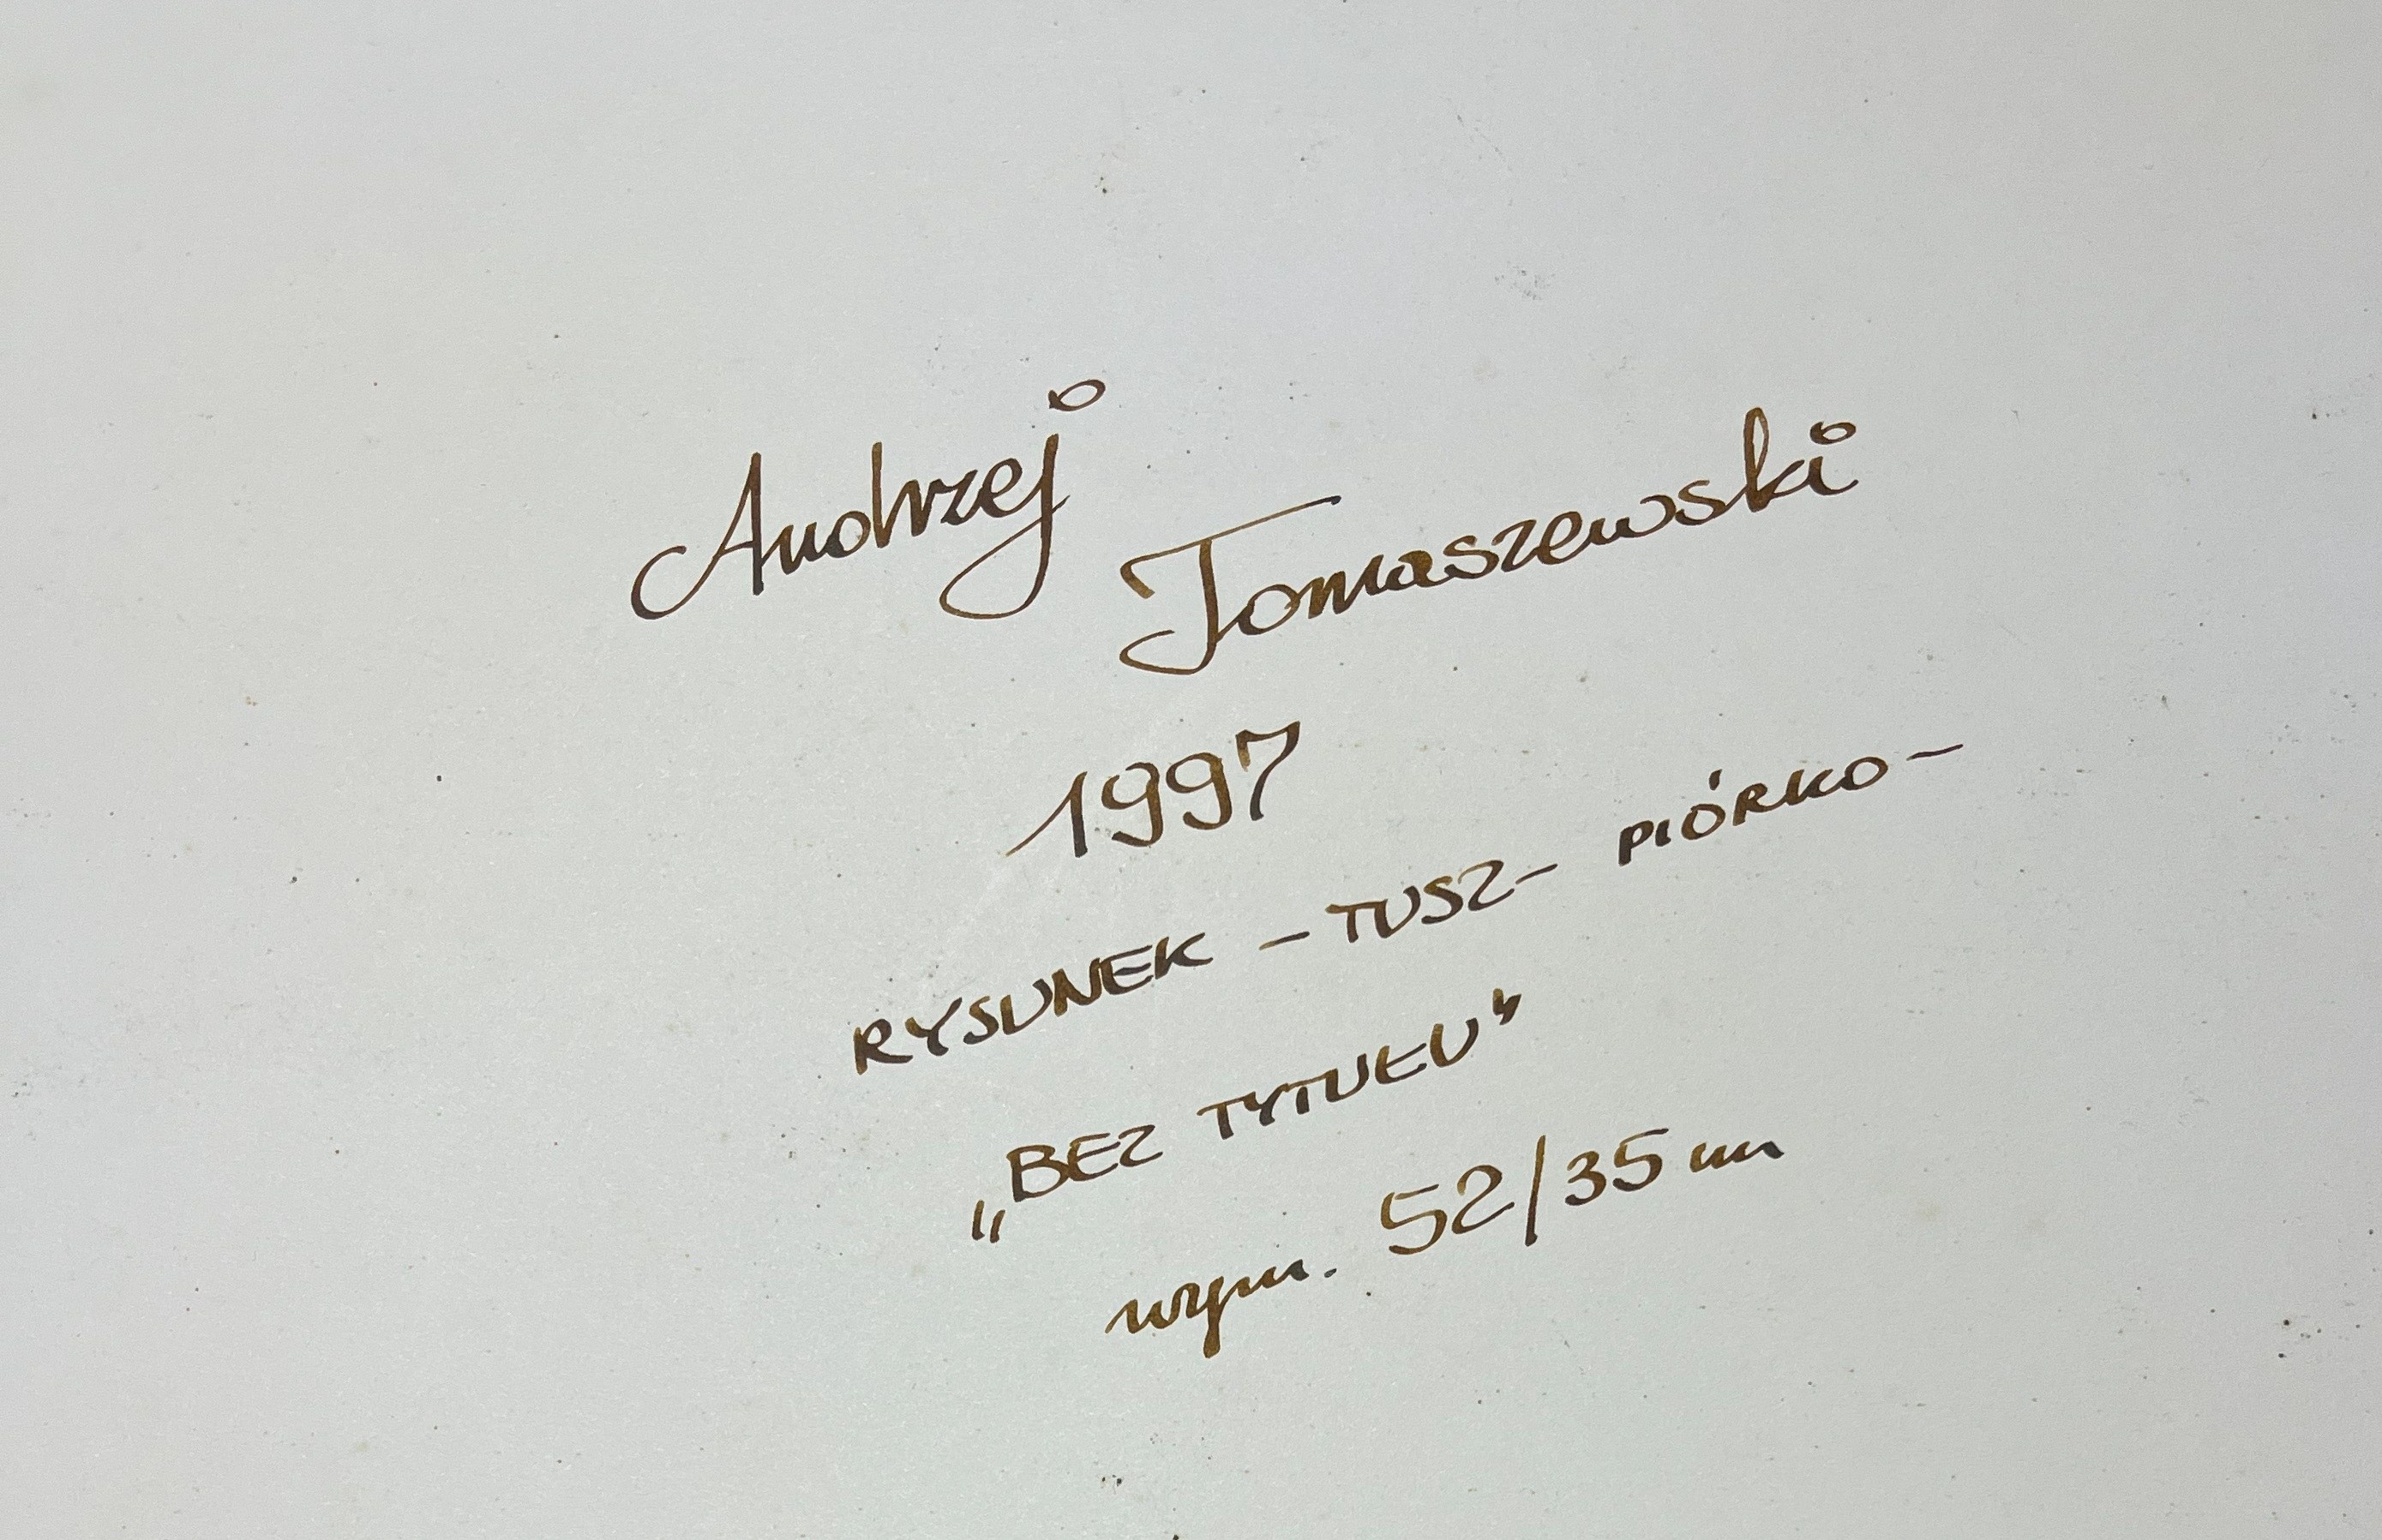 Andrzej
Tomaszewski
1997
RYSUNEK – TUSZ – PIÓRKO –
„BEZ TYTUŁU”
wym. 52/35 cm